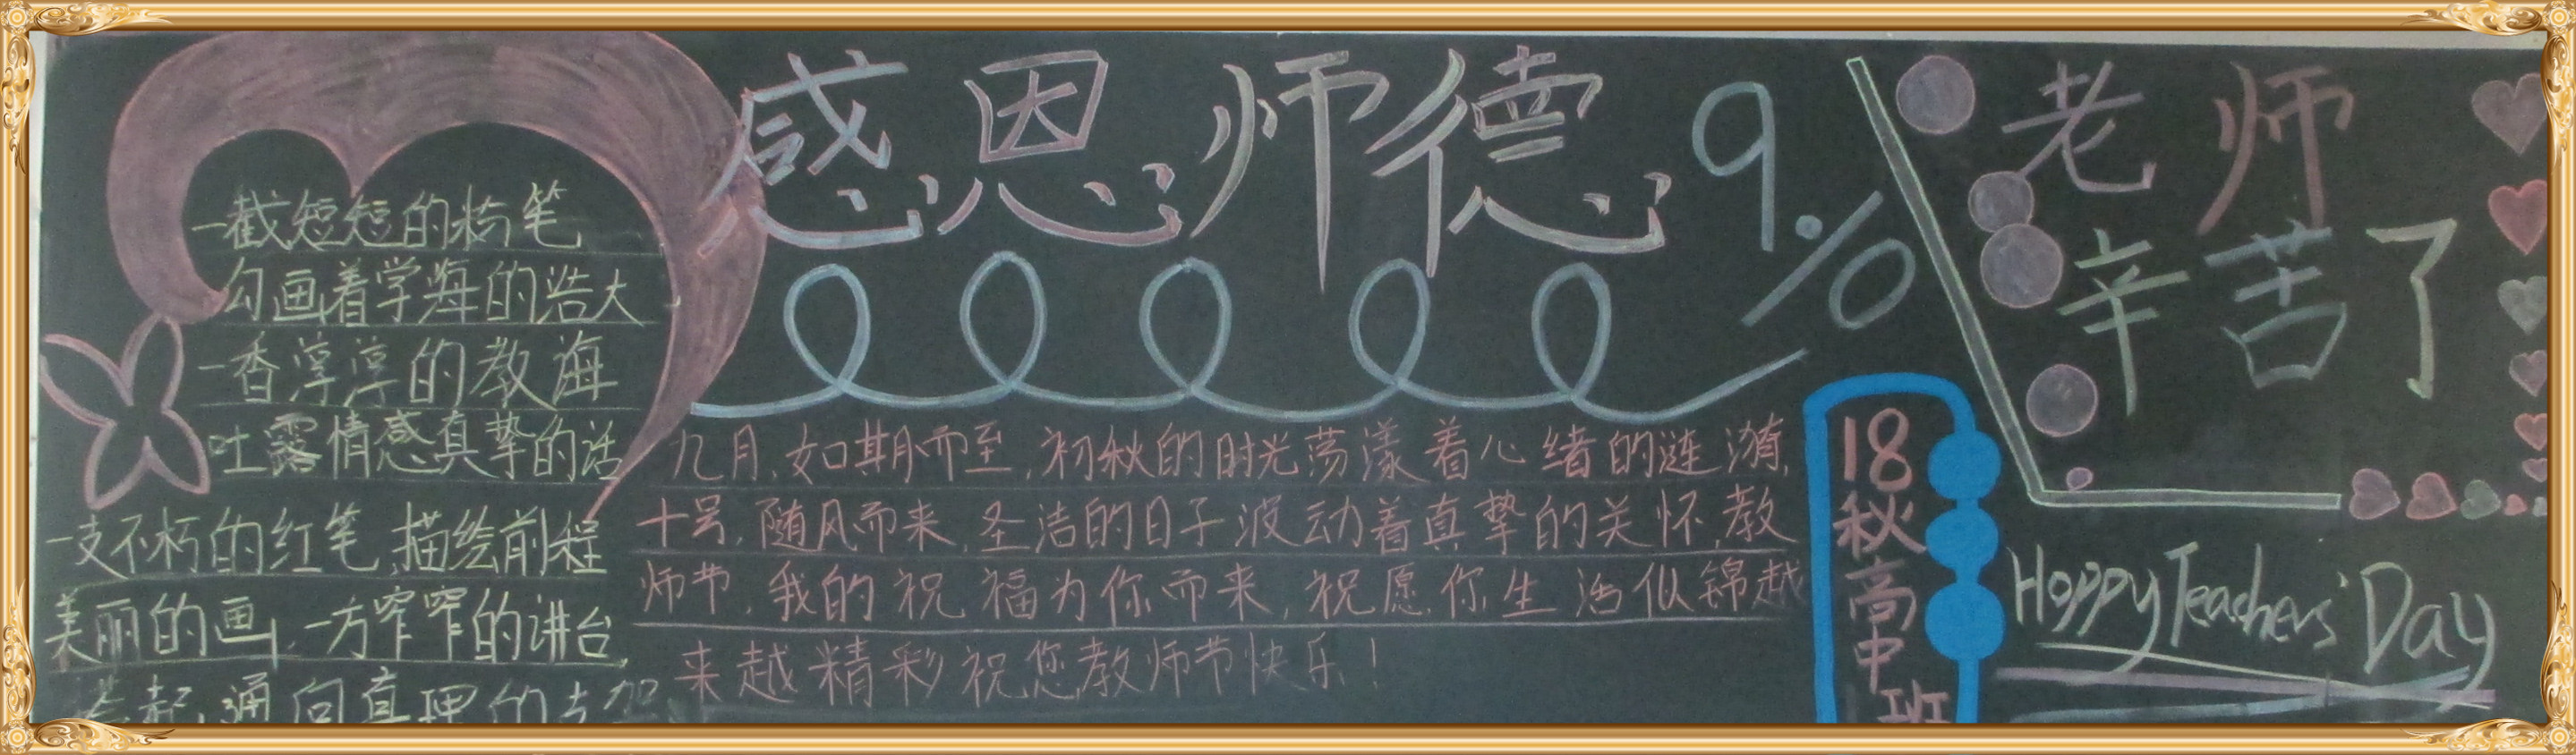 感恩师德
9.10
老师
辛苦了
一截短短的粉笔
勾画着学海的浩大
一番淳淳的教海
吐露情感真挚的话
一支不朽的红笔,描绘前程
美丽的画,一方窄窄的讲台
通向真理的
九月,如期而至,初秋的时光荡漾着心绪的涟漪,
十号,随风而来,圣洁的日子波动着真挚的关怀,教
师节,我的祝福为你而来,祝愿你生活似锦越
来越精彩祝您教师节快乐!
18
秋
高
中
班
Happy Teachers' Day